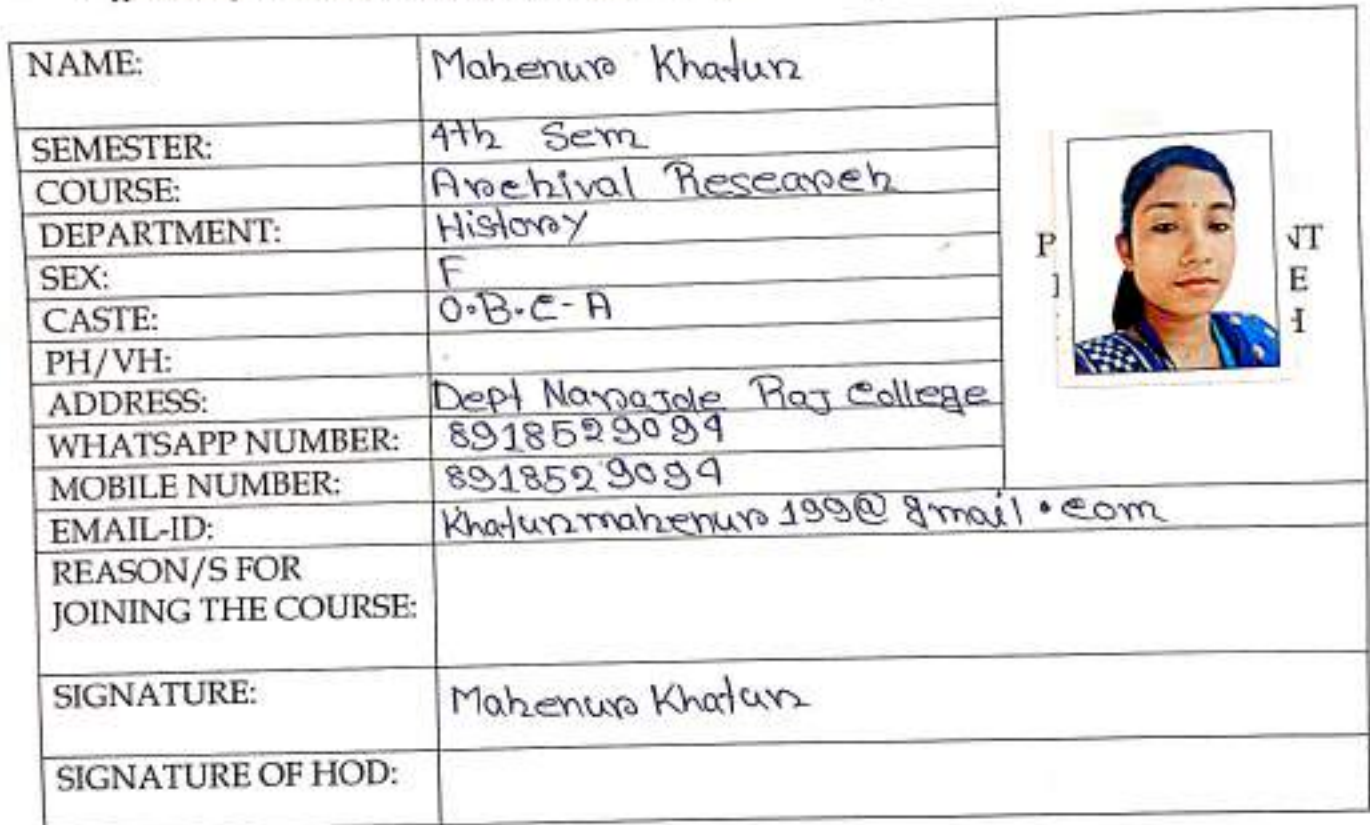 NAME: Mahenur Khatun
SEMESTER: 4th Sem
COURSE: Archival Research
DEPARTMENT: History
SEX: F
CASTE: O.B.C-A
PH/VH:
ADDRESS: Dept Narajole Raj College
WHATSAPP NUMBER: 8918529094
MOBILE NUMBER: 8918529094
EMAIL-ID: Khatunmahenur199@gmail.com
REASON/S FOR
JOINING THE COURSE:
SIGNATURE: Mahenur Khatun
SIGNATURE OF HOD: